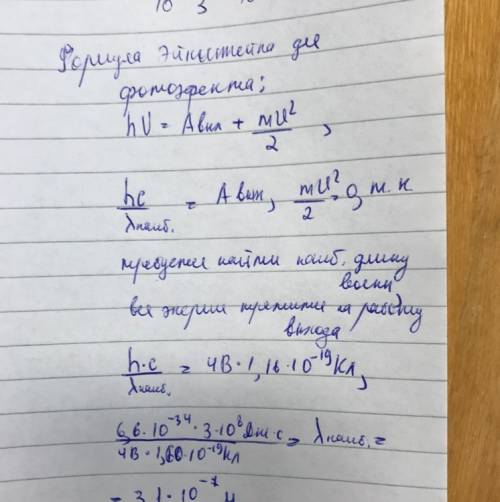 10 3
Формула Эйнштейна для
фотоэффекта:
hν = Aвых + mU²/2 ,
hc/λнаиб. = Aвых, mU²/2 = 0, т.к
требуется найти наиб. длину
волны
вся энергия на работу
выхода
h·c/λнаиб. = 4В·1,16·10⁻¹⁹Кл,
6,6·10⁻³⁴·3·10⁸Дж·с/4В·1,60·10⁻¹⁹Кл = λнаиб. =
= 3,1·10⁻⁷м